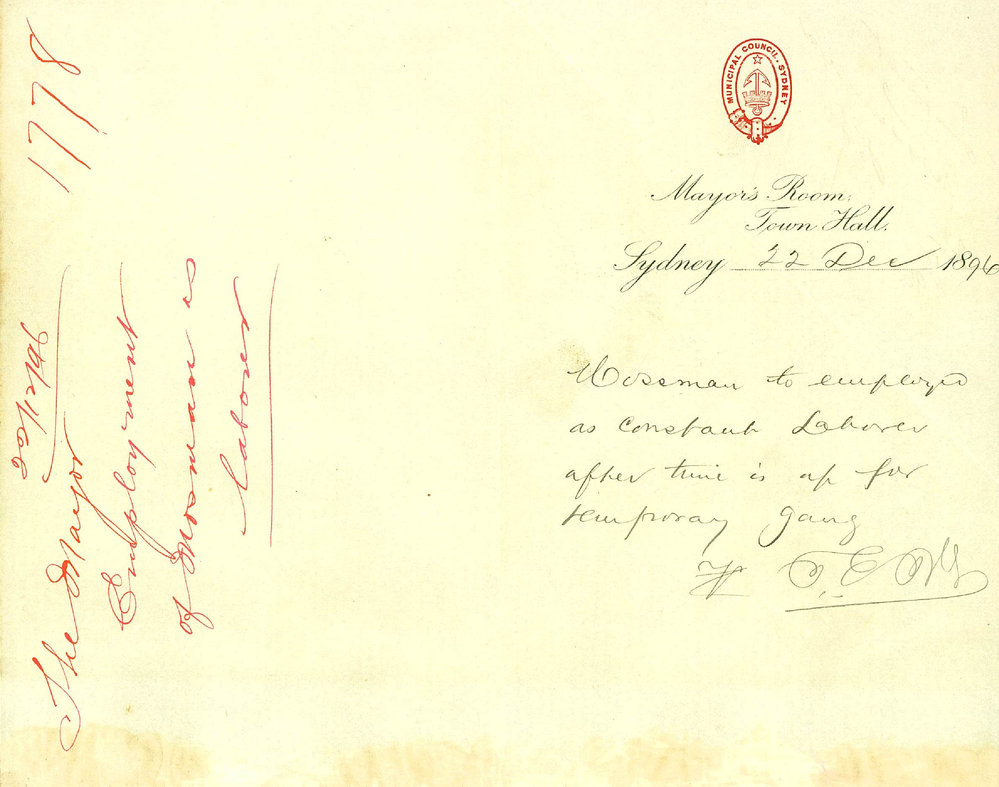 MUNICIPAL COUNCIL. SYDNEY
Mayor's Room,
Town Hall.
Sydney 22 Dec 1896
Mossman to employed
as constant Laborer
after time is up for
temporay gang
1778
The Mayor
Employment
of Mosman as
laborer